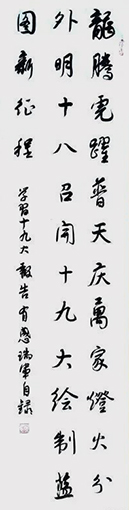 龍腾虎躍普天庆萬家燈火分
外明十八召开十九大绘制蓝
图新征程
学習十九大報告有感瑞軍自録